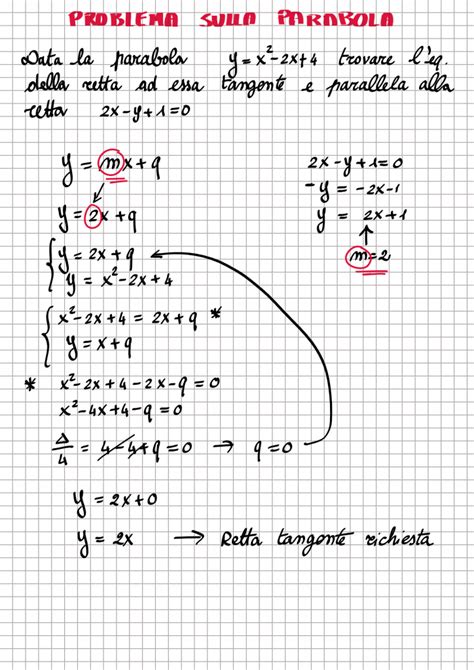 PROBLEMA SULLA PARABOLA
Data la parabola y = x² - 2x + 4 trovare l'eq.
della retta ad essa tangente e parallela alla
retta 2x - y + 1 = 0
y = mx + q
y = 2x + q
y = 2x + q
y = x² - 2x + 4
x² - 2x + 4 = 2x + q *
y = x + q
* x² - 2x + 4 - 2x - q = 0
x² - 4x + 4 - q = 0
Δ/4 = 4 - 4 + q = 0 → q = 0
y = 2x + 0
y = 2x → Retta tangente richiesta
2x - y + 1 = 0
-y = -2x - 1
y = 2x + 1
m = 2